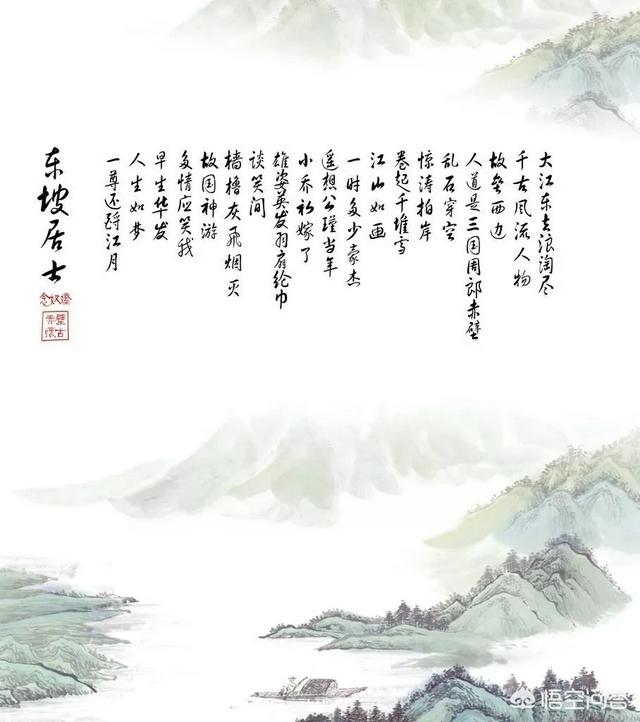 大江东去浪淘尽
千古风流人物
故垒西边
人道是三国周郎赤壁
乱石穿空
惊涛拍岸
卷起千堆雪
江山如画
一时多少豪杰
遥想公瑾当年
小乔初嫁了
雄姿英发羽扇纶巾
谈笑间
樯橹灰飞烟灭
故国神游
多情应笑我
早生华发
人生如梦
一尊还酹江月
东坡居士
念奴娇
赤壁
怀古
悟空问答